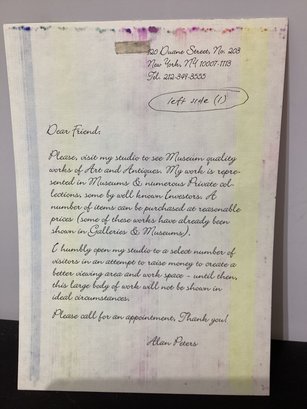 120 Duane Street, No. 203
New York, NY 10007-1113
Tel. 212-349-3555
left side (1)
Dear Friend:
Please, visit my studio to see Museum quality
works of Art and Antiques. My work is repre-
sented in Museums & numerous Private col-
lections, some by well known Investors. A
number of items can be purchased at reasonable
prices (some of these works have already been
shown in Galleries & Museums).
I humbly open my studio to a select number of
visitors in an attempt to raise money to create a
better viewing area and work space - until then,
this large body of work will not be shown in
ideal circumstances.
Please call for an appointment, Thank you!
Alan Peters